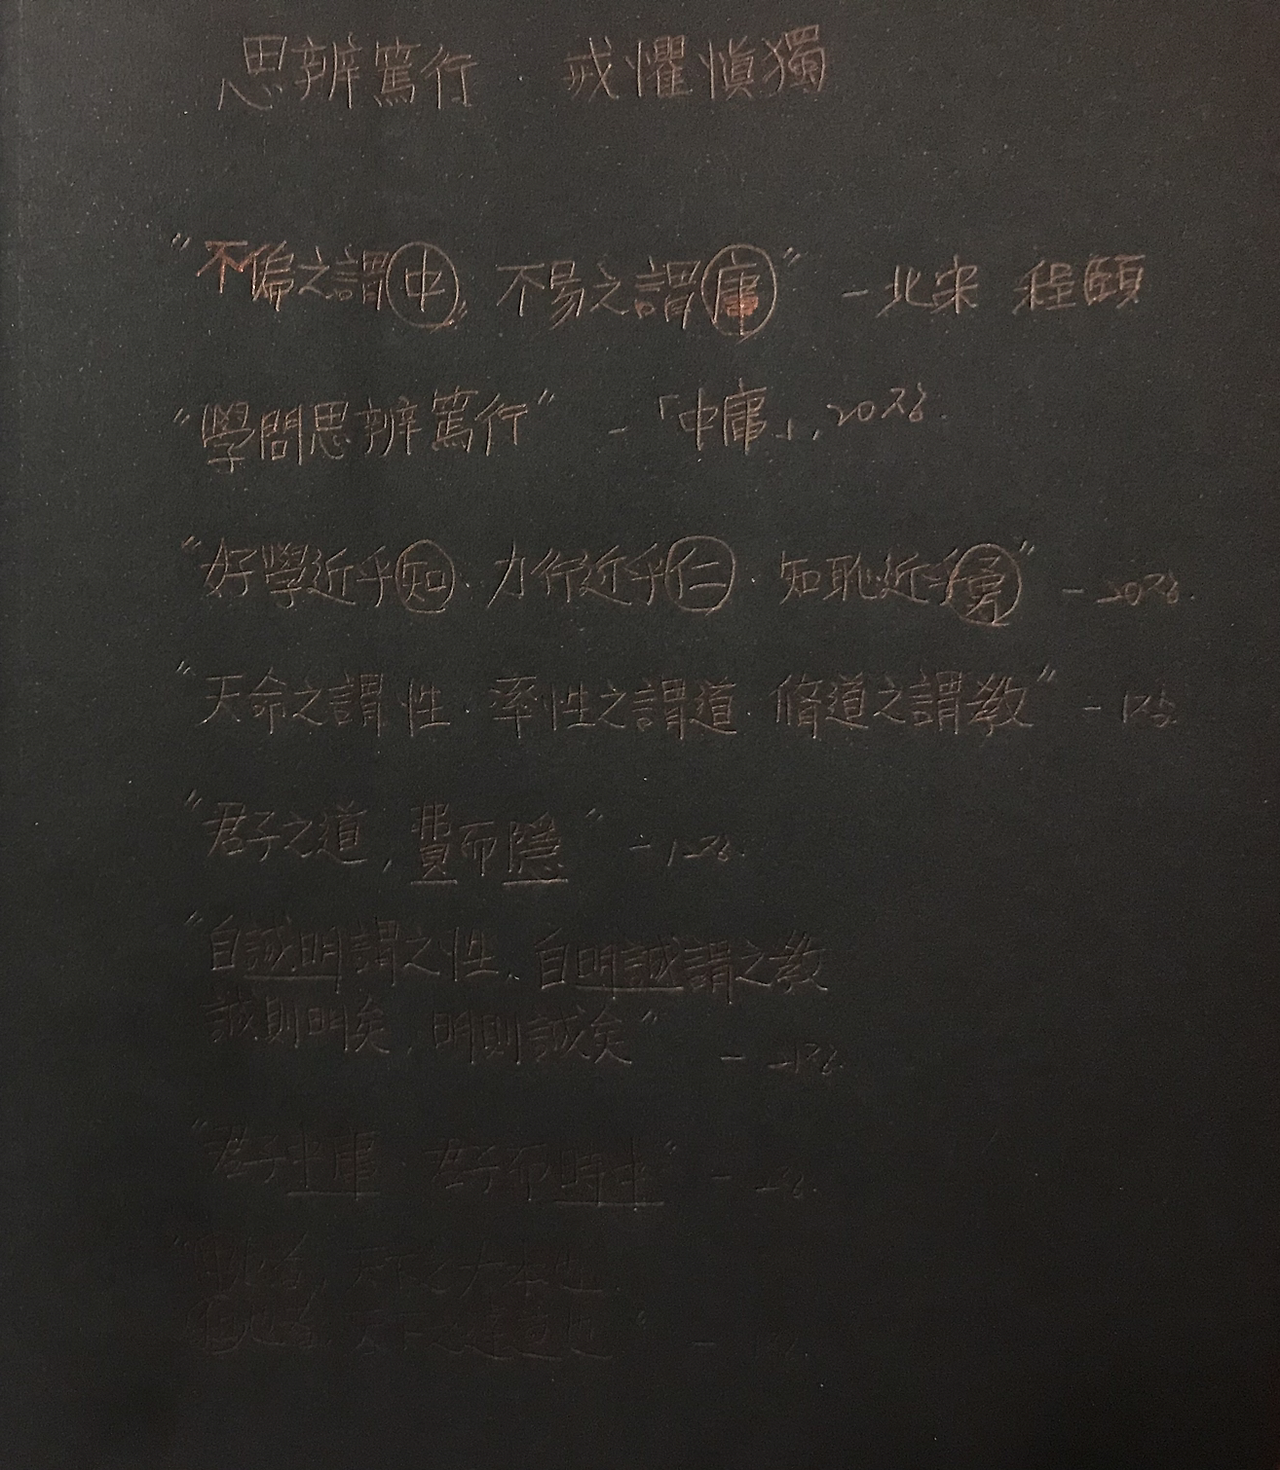 思辨篤行 戒懼愼獨
"不偏之謂中, 不易之謂庸" - 北宋 程頤
"學問思辨篤行" - 「中庸」, 20장.
"好學近乎知. 力行近乎仁. 知恥近乎勇" - 20장.
"天命之謂性. 率性之謂道. 脩道之謂敎" - 1장.
"君子之道, 費而隱" - 12장.
"自誠明謂之性, 自明誠謂之敎
誠則明矣, 明則誠矣" - 21장.
"君子中庸. 君子而時中" - 2장.
"中也者, 天下之大本也.
和也者 天下之達道也" -